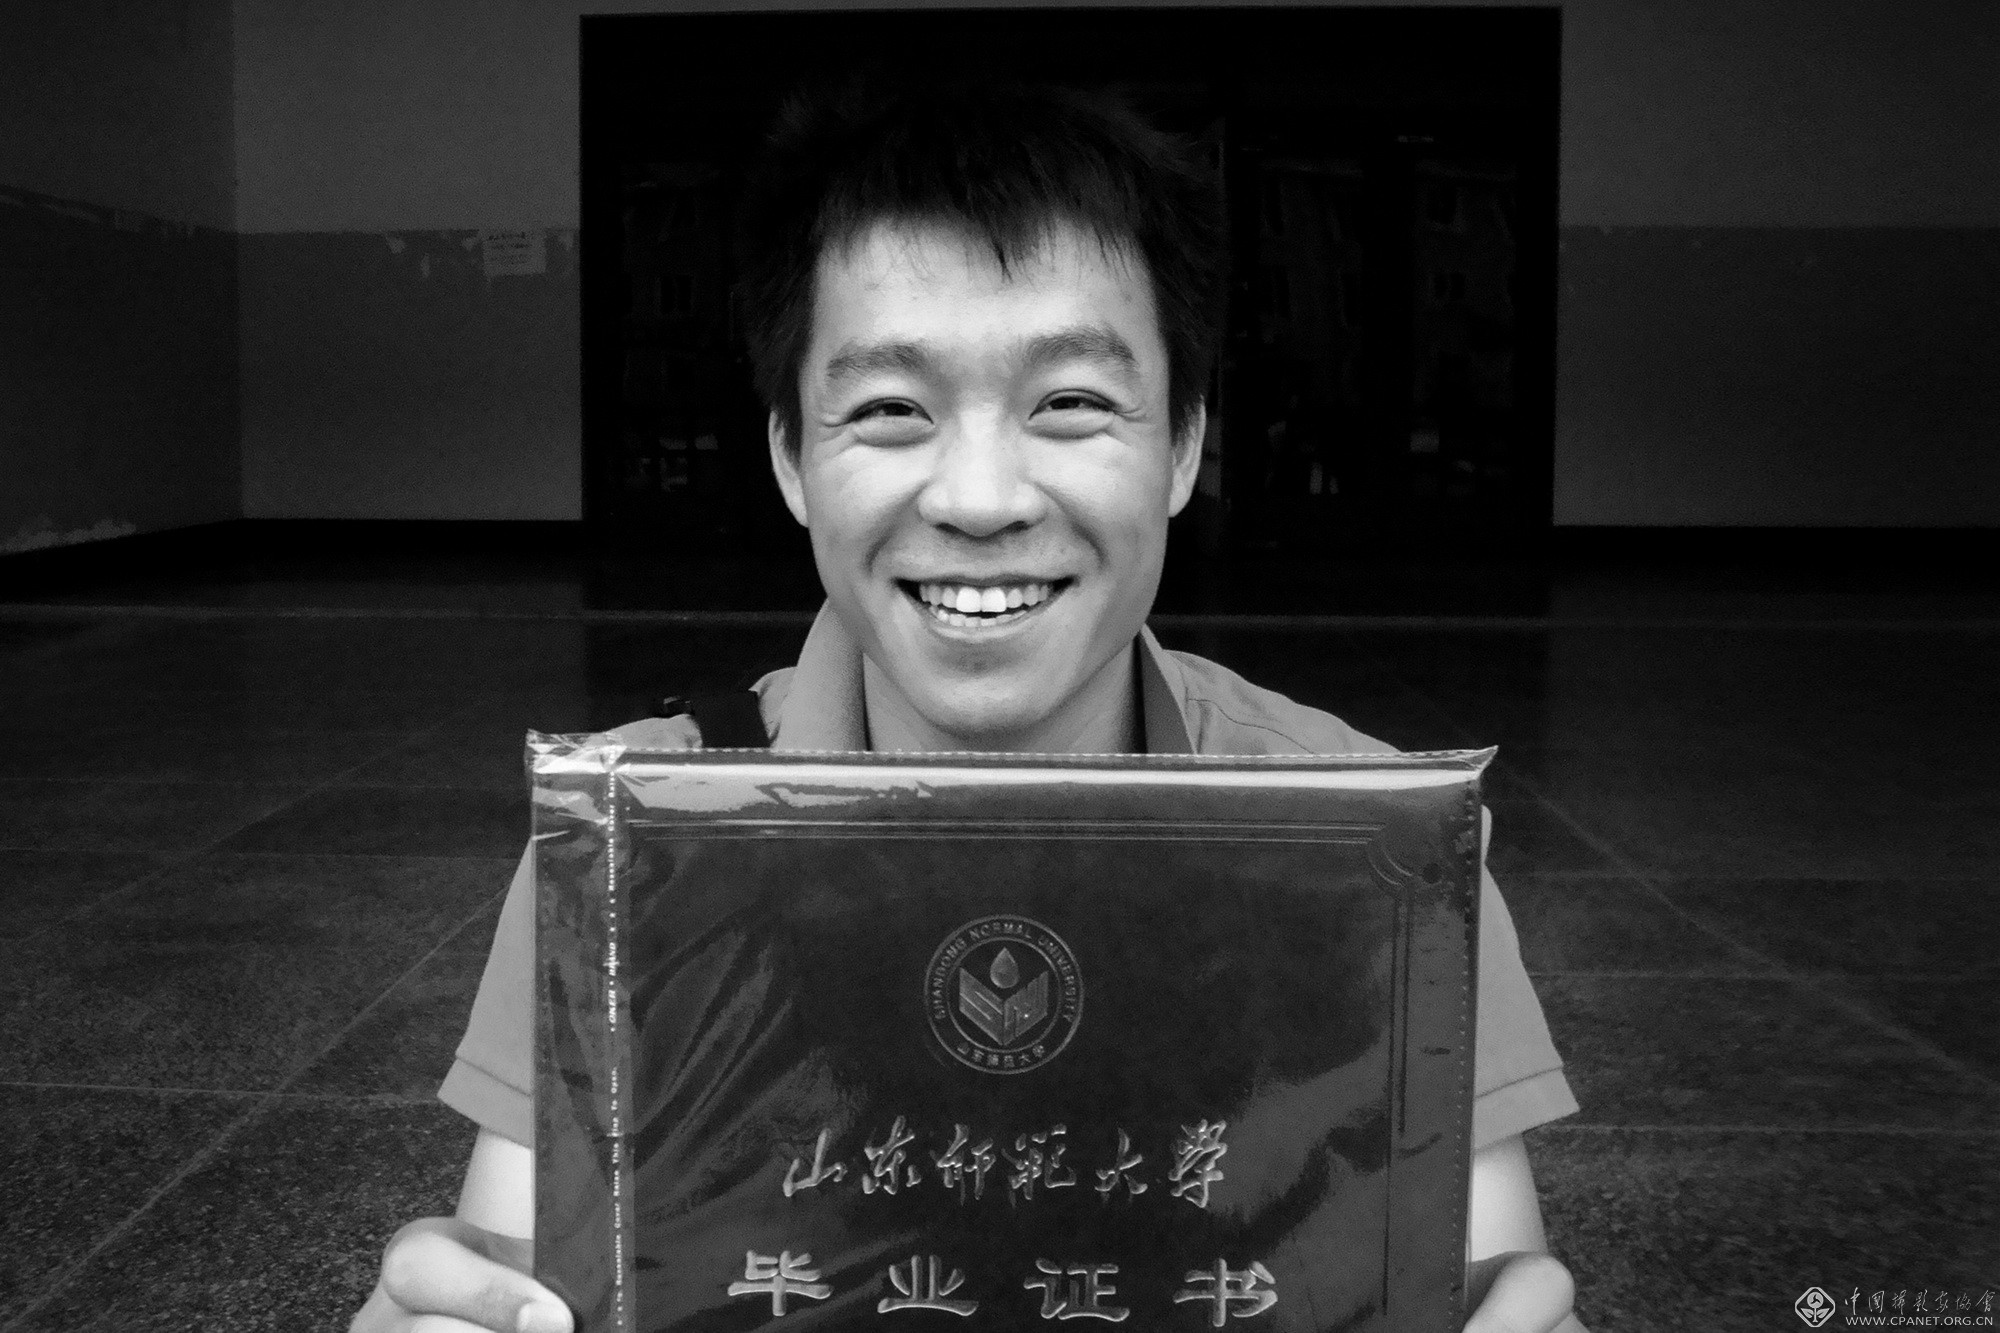 SHANDONG NORMAL UNIVERSITY
山东师范大学
山东师范大学
毕业证书
中国摄影家协会
WWW.CPANET.ORG.CN